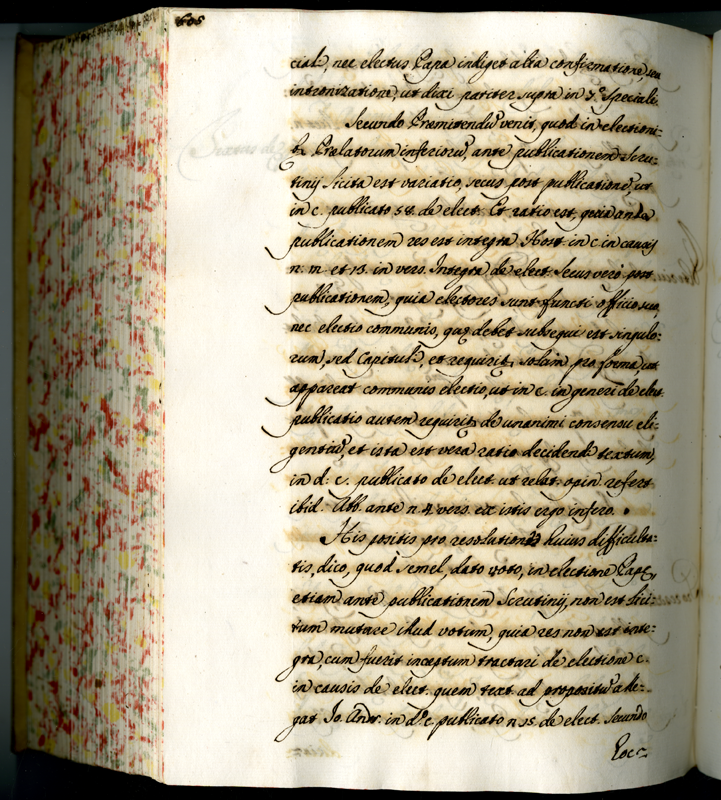 606
cial., nec electus Papa indiget alia confirmatione, seu
intronizatione, ut dixi pariter supra in 7.º Speciali.
Secundo Premitendũ venit, quod in electioni-
b. Prelatorum inferiorũ, ante publicationem Scru-
tinij licita est variatio, secus post publicationẽ, ut
in c. publicato 58. de elect. Et ratio est, quia ante
publicationem res est integra Host. in c. in causis
n. m. et 13. in vers. Integra de elect. Secus verò post
publicationem, quia electores sunt functi officio suo,
nec electio communio, quę debet subsequi est singulo-
rum, sed Capituli, et requirit solum pro forma, ut
appareat communio electio, ut in c. in generi de elect.
publicatio autem requirit de unanimi consensu eli-
gentiũ, et ista est vera ratio decidendi textum,
in d. c. publicato de elect. ut relat. opin. refert
ibid. Abb. ante n. 4 vers. ex istis ergo infero.
His positis pro resolution huius difficulta-
tis, dico, quod semel, dato voto, in electione Papę,
etiam ante publicationem Scrutinij, non est lici-
tum mutare illud votum, quia res non est inte-
gra, cum fuerit inceptum tractari de electione c.
in causis de elect. quem text. ad propositũ alle-
gat Jo. Andr. in d.º c. publicato n. 15. de elect. Secundo